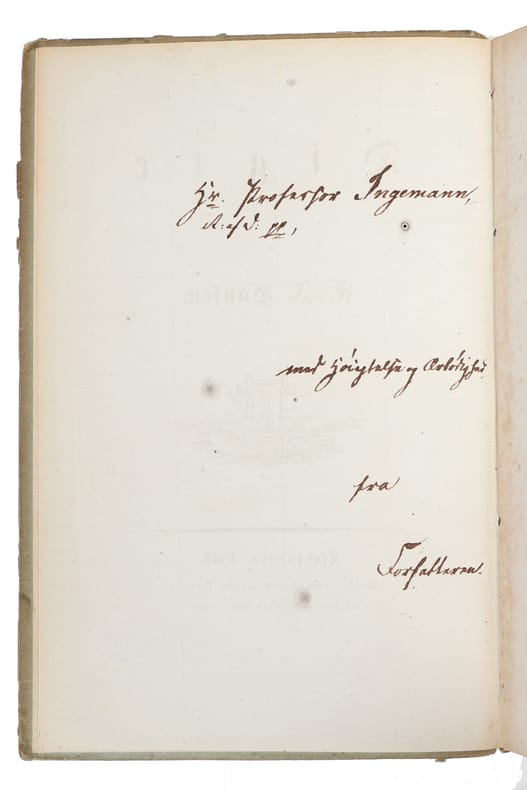 Hr. Professor Ingemann,
R: af D: pp,
med Høiagtelse og Ærbødighed
fra
Forfatteren.